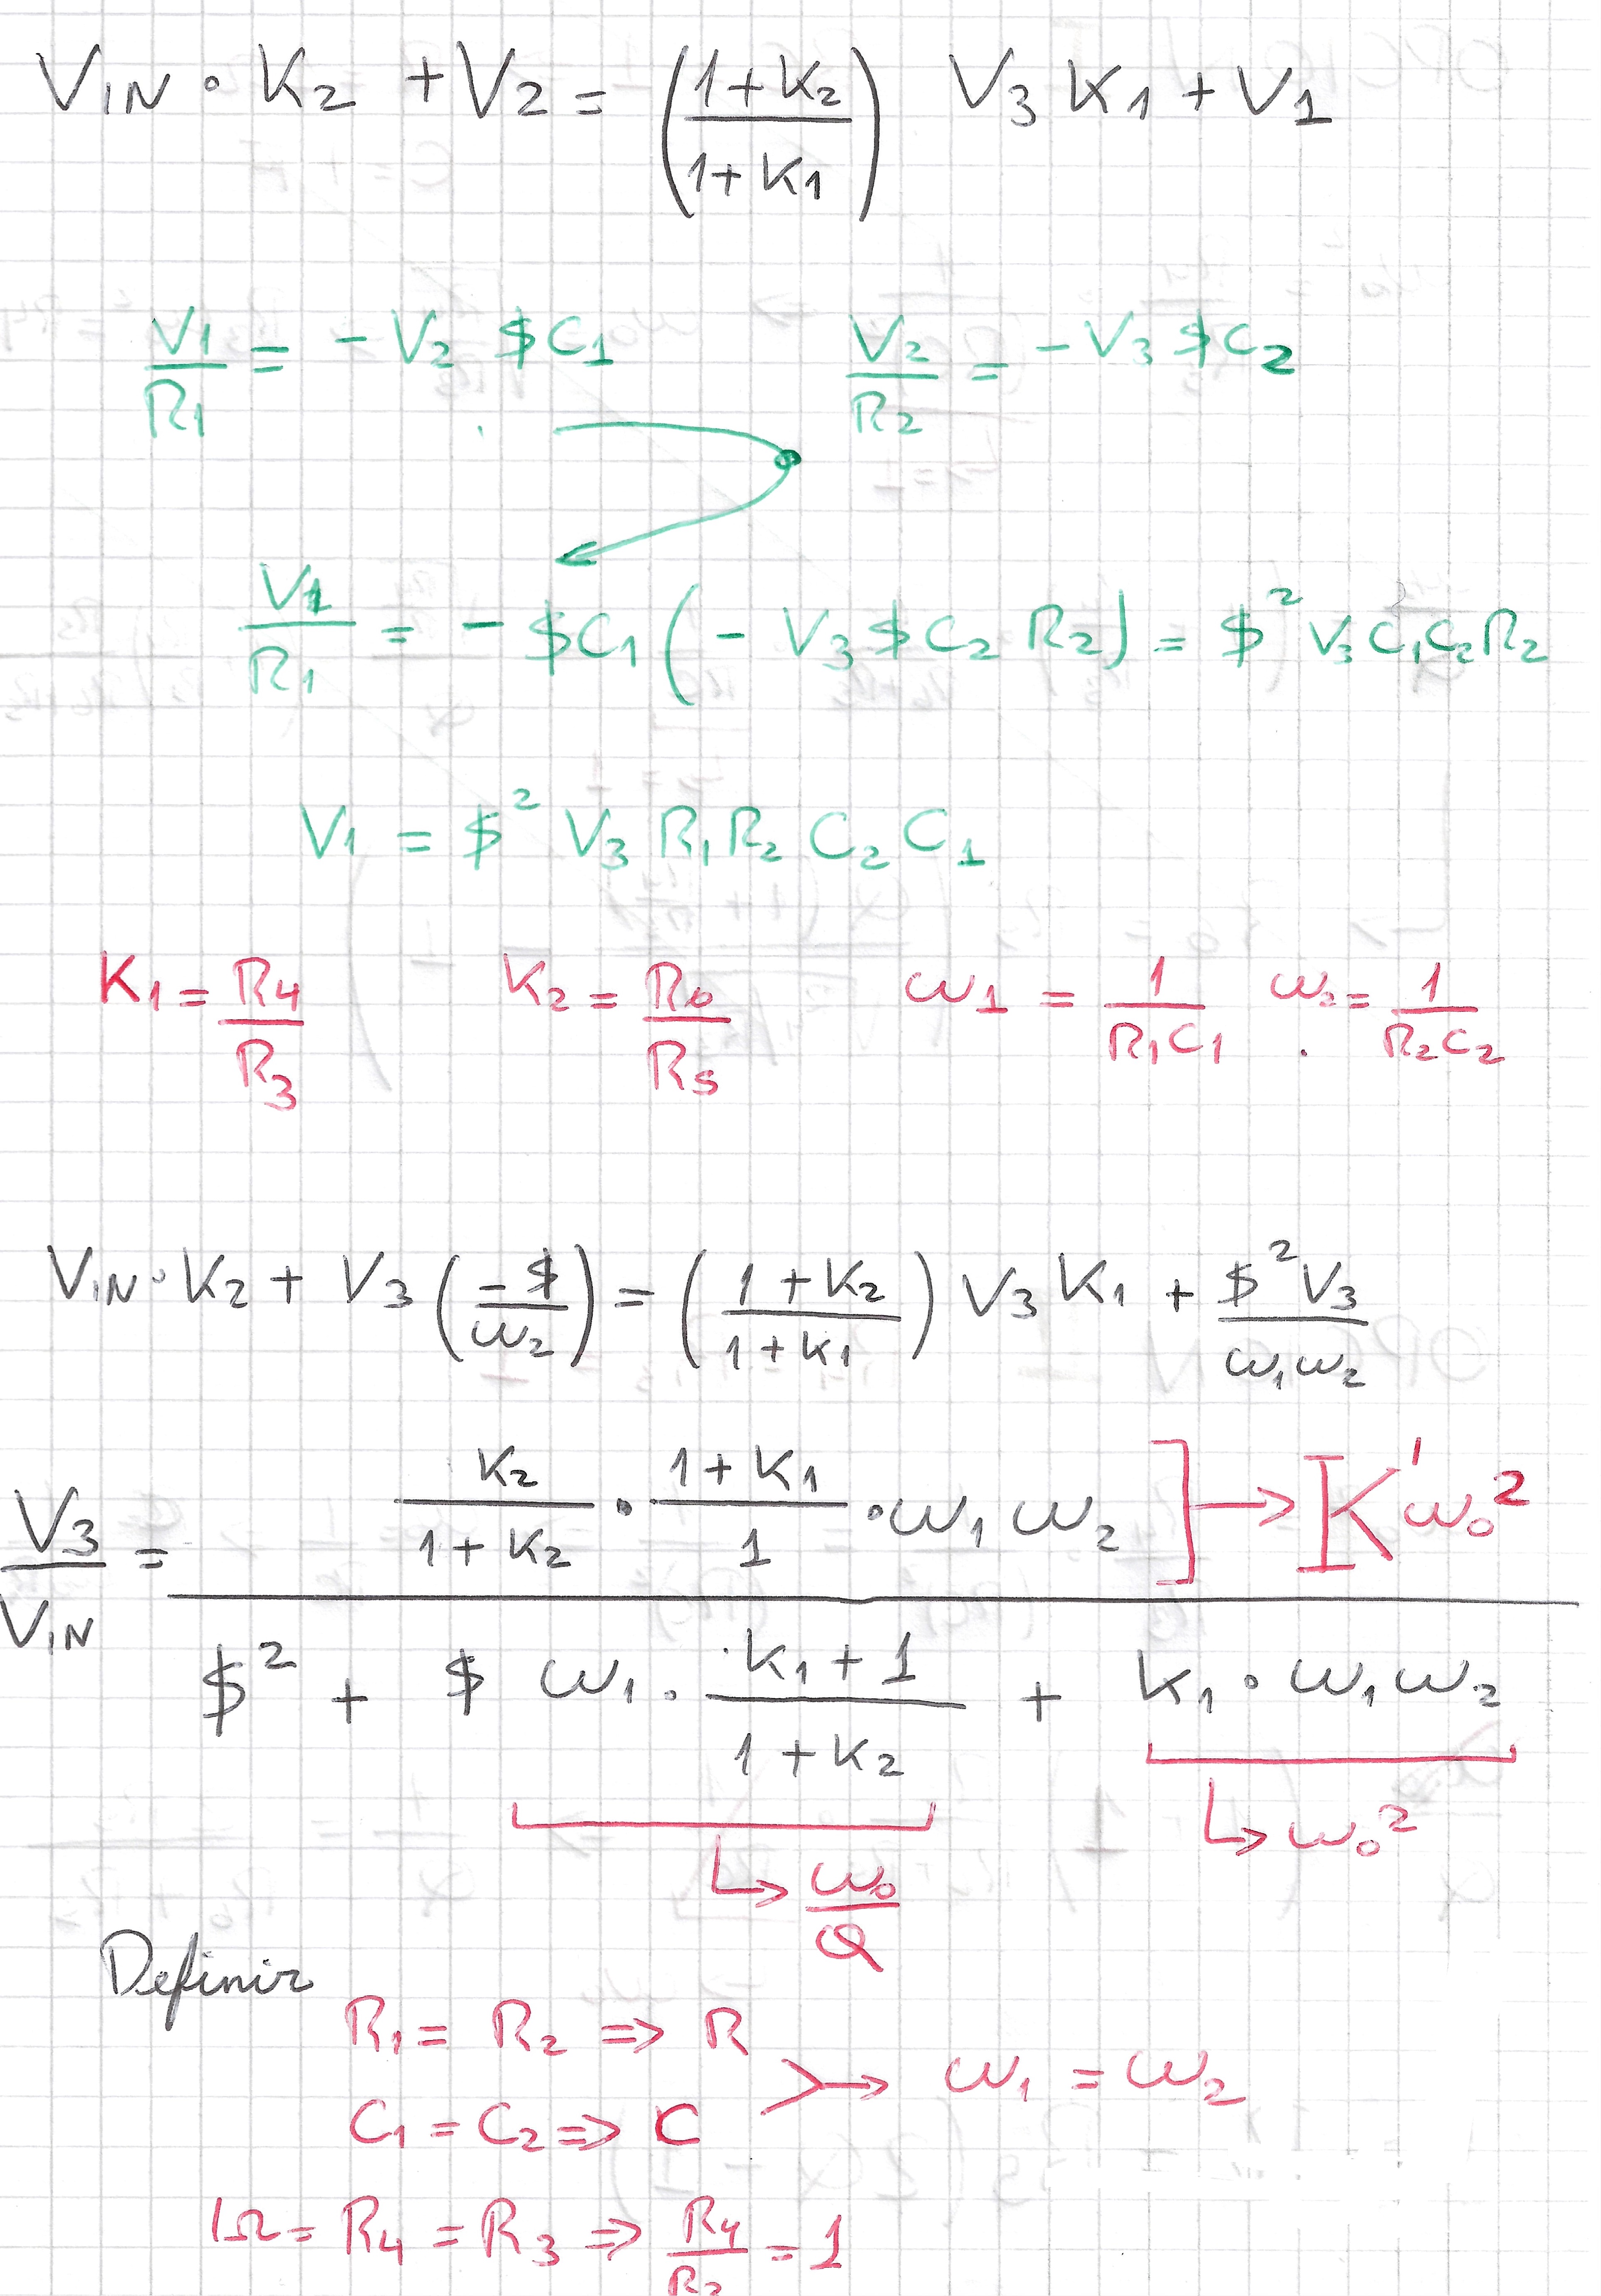 VIN · K2 + V2 = ((1+K2)/(1+K1)) V3 K1 + V1
V1/R1 = - V2 $C1    V2/R2 = - V3 $C2
V1/R1 = - $C1 (- V3 $ C2 R2) = $² V3 C1 C2 R2
V1 = $² V3 R1 R2 C2 C1
K1 = R4/R3    K2 = R6/R5    ω1 = 1/(R1 C1)    ω2 = 1/(R2 C2)
VIN · K2 + V3 (-$/ω2) = ((1+K2)/(1+K1)) V3 K1 + $² V3/(ω1 ω2)
K2/(1+K2) · (1+K1)/1 · ω1 ω2 ] → K' ω0²
V3/VIN =
$² + $ ω1 · (K1+1)/(1+K2) + K1 · ω1 ω2
↳ ω0/Q    ↳ ω0²
Definir
R1 = R2 => R
> → ω1 = ω2
C1 = C2 => C
1Ω = R4 = R3 => R4/R3 = 1